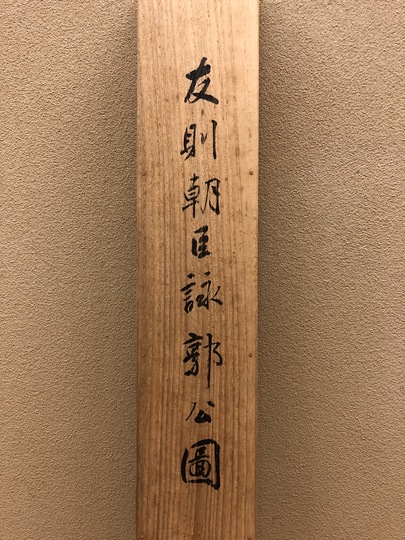 友則朝臣詠郭公圖